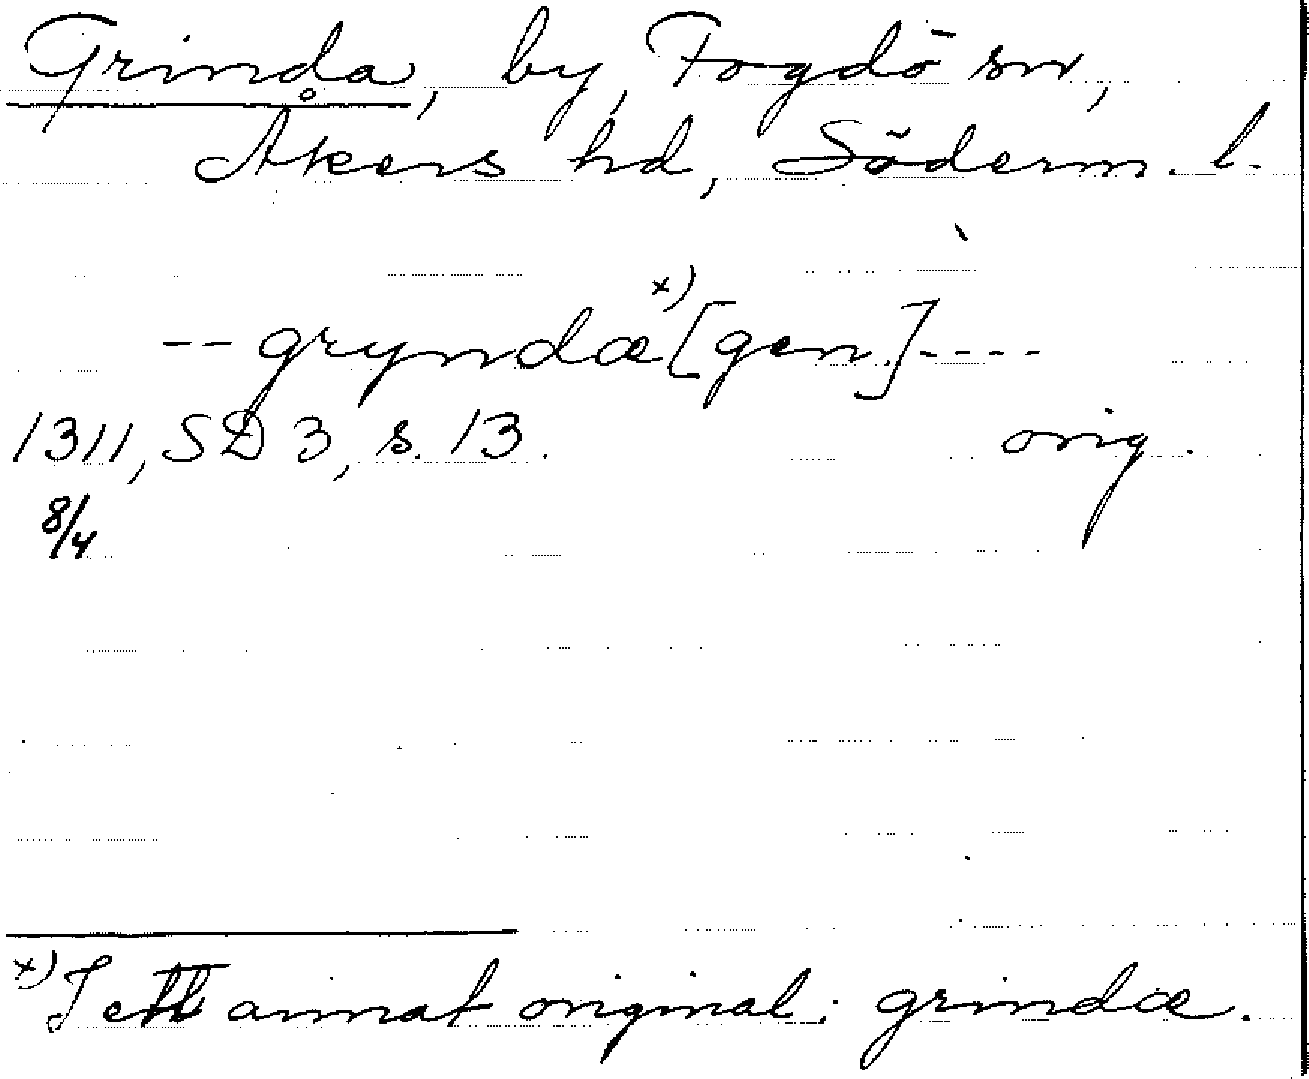 Grinda, by, Fogdö sn,
Åkers hd, Söderm. l.
-- gryndæ x) [gen.] ----
1311, SD 3, s. 13. orig.
8/4
x) I ett annat original: grindæ.